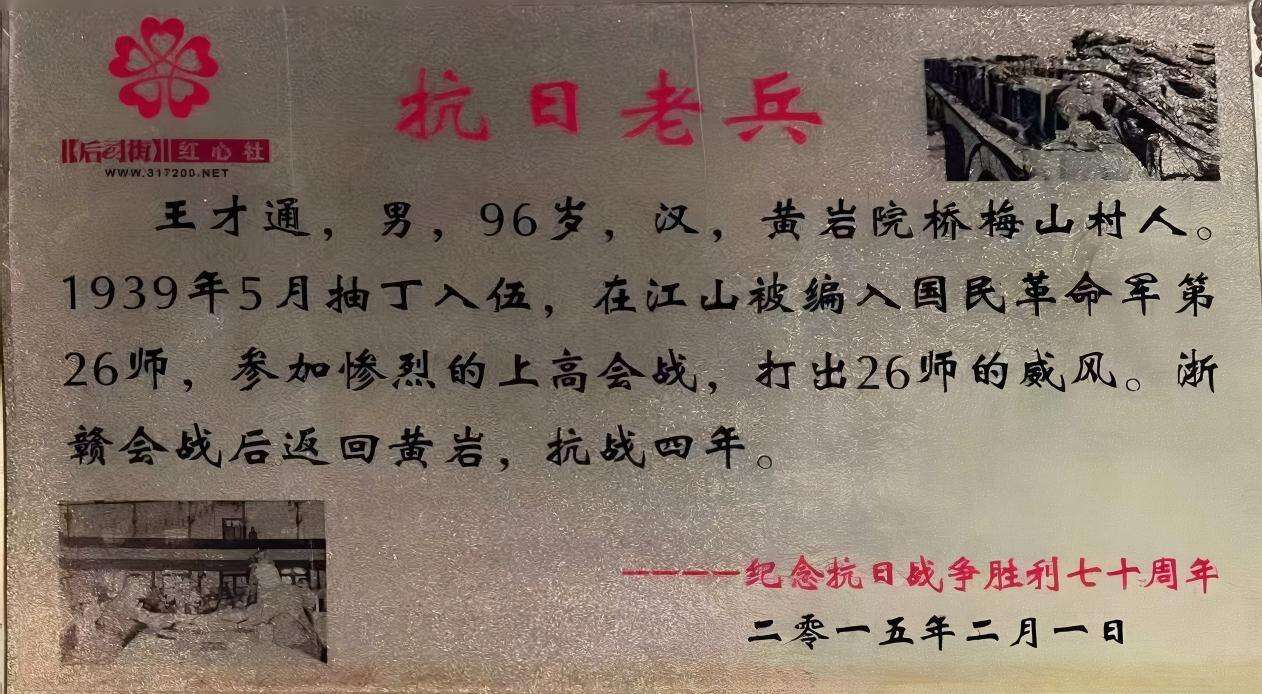 抗日老兵
《后司街》红心社
WWW.317200.NET
王才通，男，96岁，汉，黄岩院桥梅山村人。
1939年5月抽丁入伍，在江山被编入国民革命军第
26师，参加惨烈的上高会战，打出26师的威风。浙
赣会战后返回黄岩，抗战四年。
————纪念抗日战争胜利七十周年
二零一五年二月一日